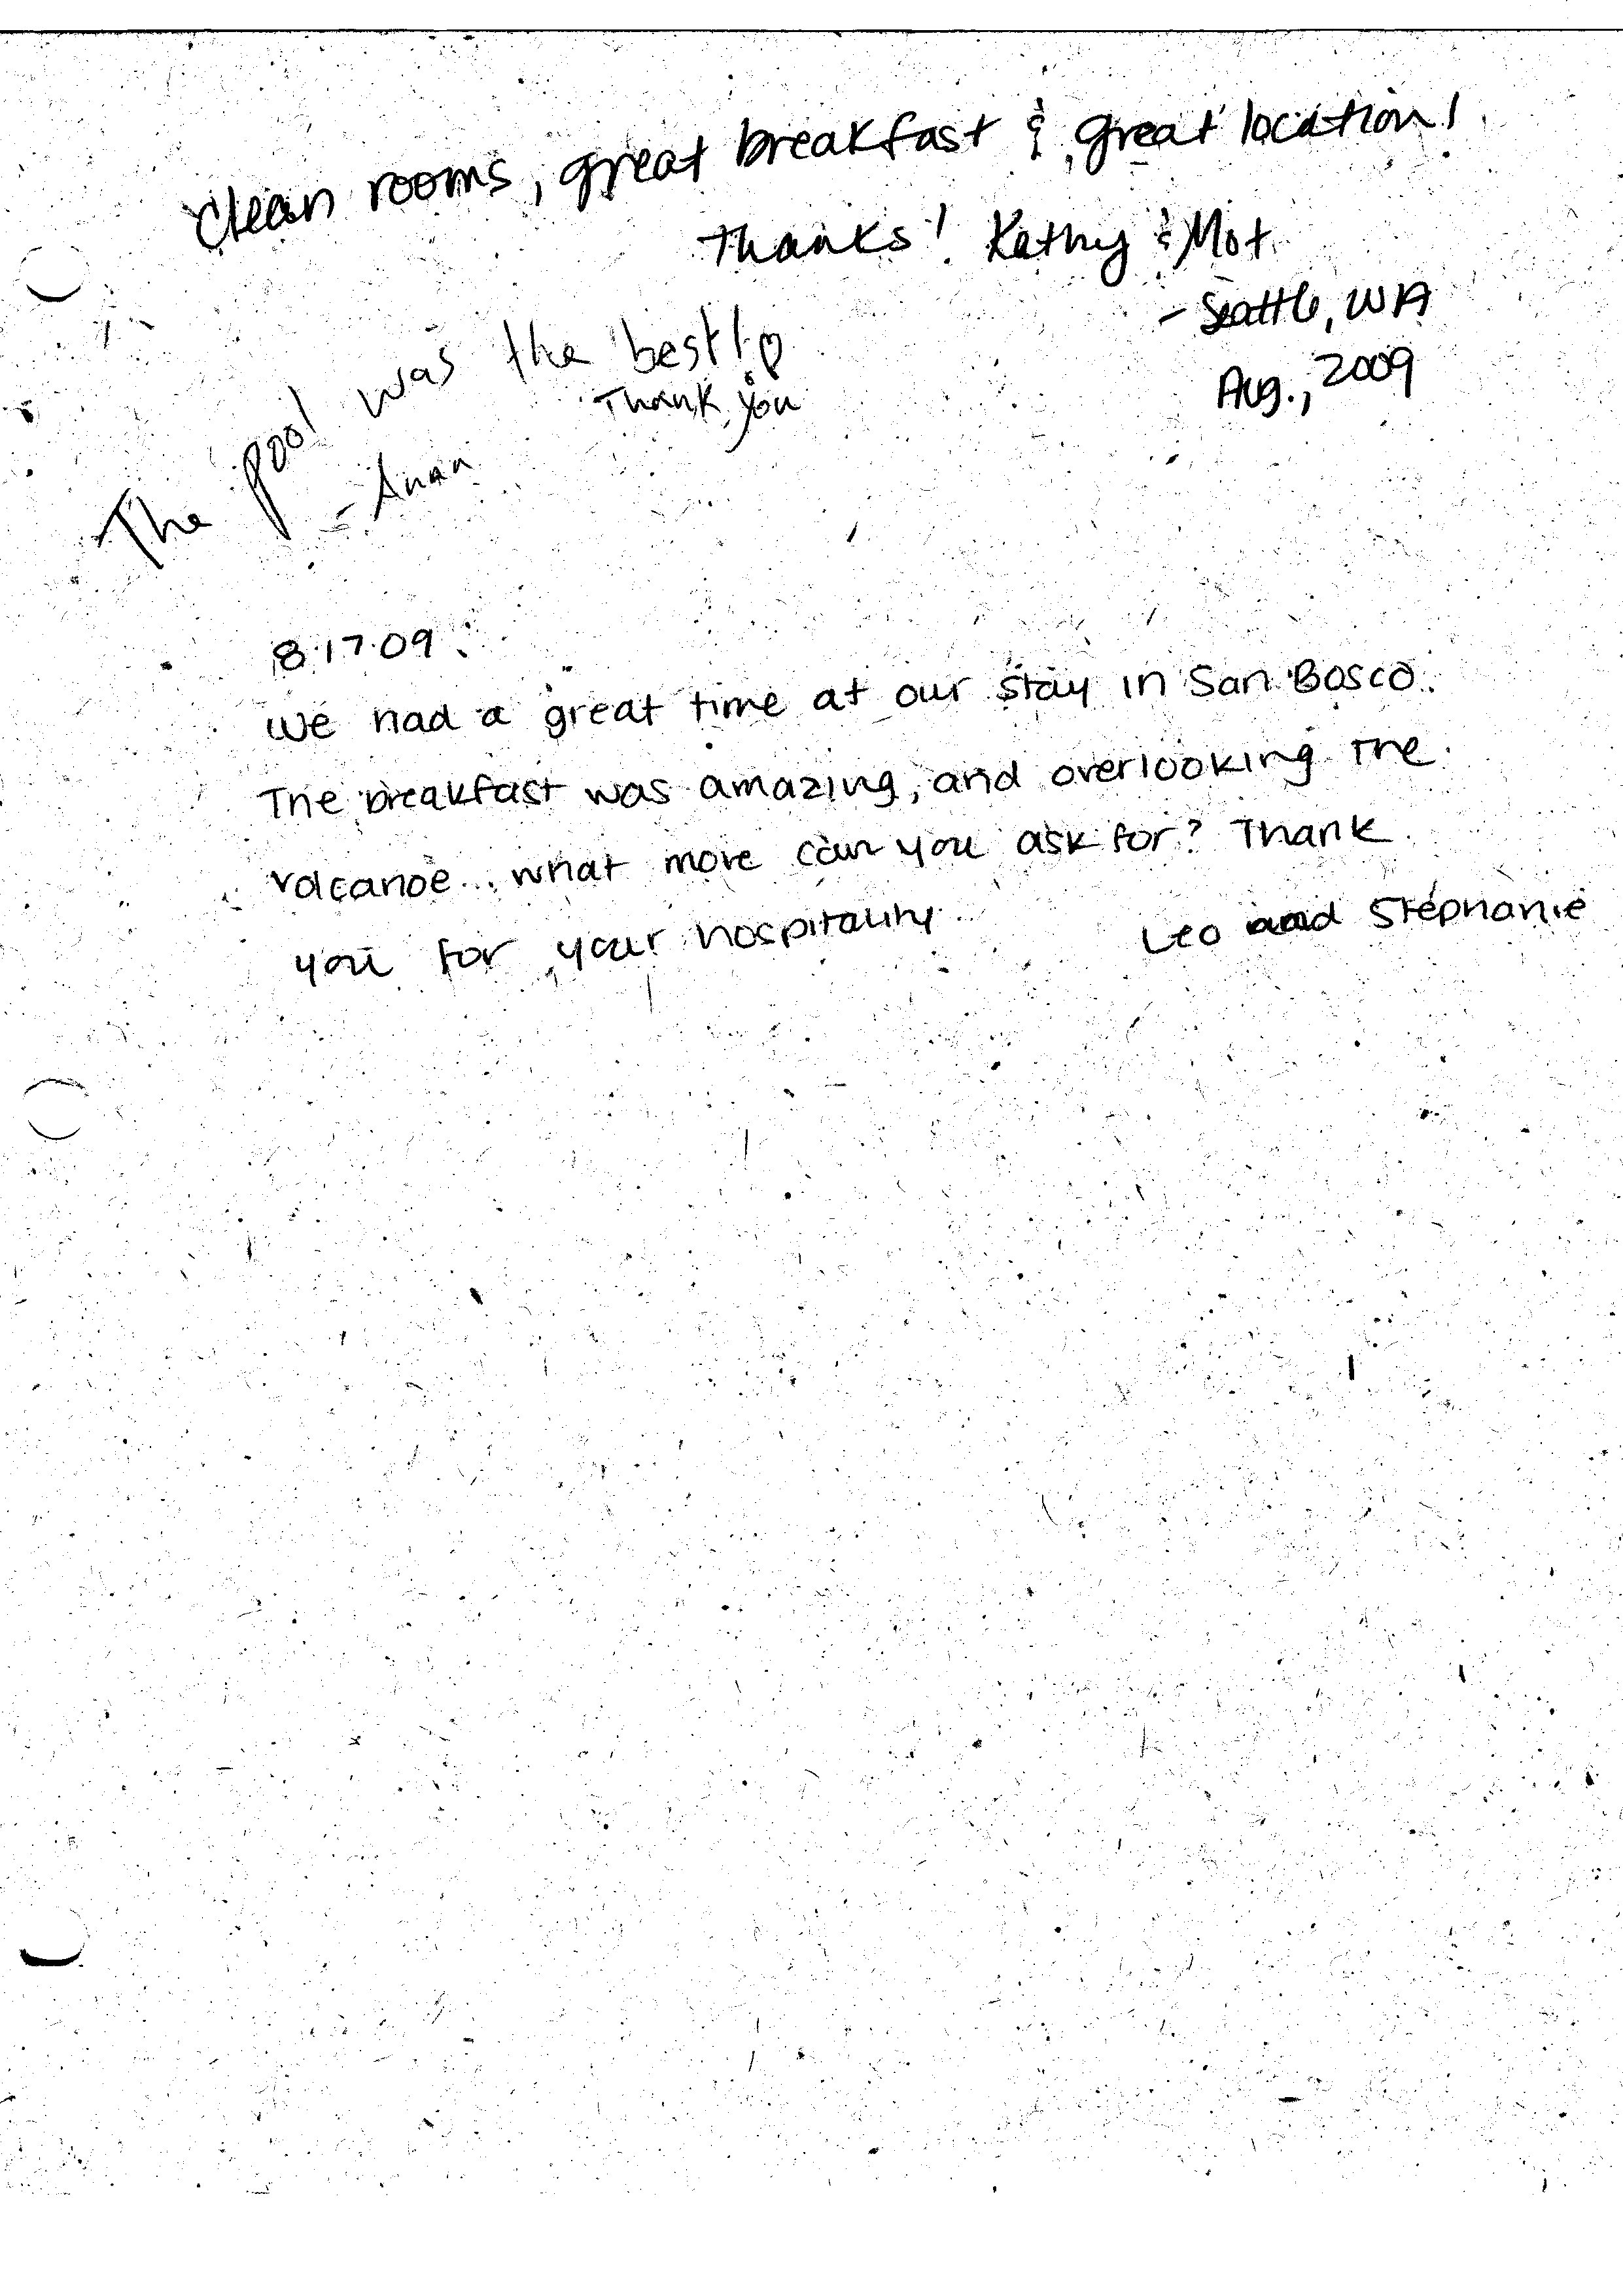 Clean rooms, great breakfast & great location!
Thanks! Kathy & Mot
- Seattle, WA
Aug., 2009
The pool was the best!! ♡
Thank you
- Anan
8.17.09
We had a great time at our stay in San Bosco.
The breakfast was amazing, and overlooking the
volcanoe... what more can you ask for? Thank
you for your hospitality
Leo and Stephanie